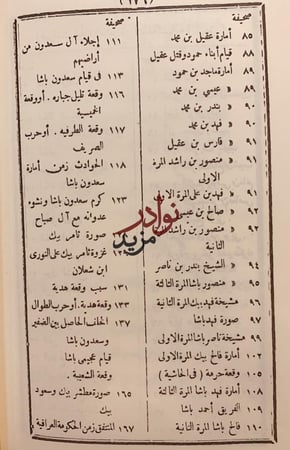 (١٧٩)
صحيفة
٨٥ أمارة عقيل بن محمد
٨٨ قيام أبناء حمود وقتل عقيل
٨٩ أمارة ماجد بن حمود
٨٩ « عيسى بن محمد
٩٠ « بندر بن محمد
٩٠ « فهد بن محمد
٩١ « فارس بن عقيل
٩١ « منصور بن راشد المرة الاولى
٩١ « فهد بن علي المرة الاولى
٩٢ « صالح بن عيسى
٩٢ « منصور بن راشد المرة الثانية
٩٤ « الشيخ بندر بن ناصر
٩٥ « منصور باشا المرة الثالثة
٩٦ مشيخة فهد بك المرة الثانية
٩٧ صورة فهد باشا
٩٩ مشيخة ناصر باشا المرة الاولى
١٠٤ أمارة فالح بيك المرة الاولى
١٠٥ وقعة حرمة (في الحاشية)
١٠٨ أمارة فهد باشا المرة الثالثة
١٠٩ الفريق أحمد باشا
١١٠ فالح باشا المرة الثانية
صحيفة
١١١ إجلاء آل سعدون من أراضيهم
١١٣ في قيام سعدون باشا
١١٦ وقعة تليل جباره . أو وقعة الخميسية
١١٧ وقعة الطرفيه . أو حرب الصريف
١١٨ الحوادث زمن أمارة سعدون باشا
١٢٣ كرم سعدون باشا ونشوء عدوانه مع آل صباح
صورة ثامر بيك
غزوة ثامر بيك على النورى ابن شعلان
١٣١ سبب وقعة هدية
١٣٣ وقعة هدية . أو حرب الطوال
١٣٧ الخلف الحاصل بين الضفير وسعدون باشا
قيام عجيمي باشا
وقعة الشعيبة .
١٦٥ صورة مطشر بيك وسعود بيك
١٦٧ المنتفق زمن الحكومة العراقية
نوادر
مزيد